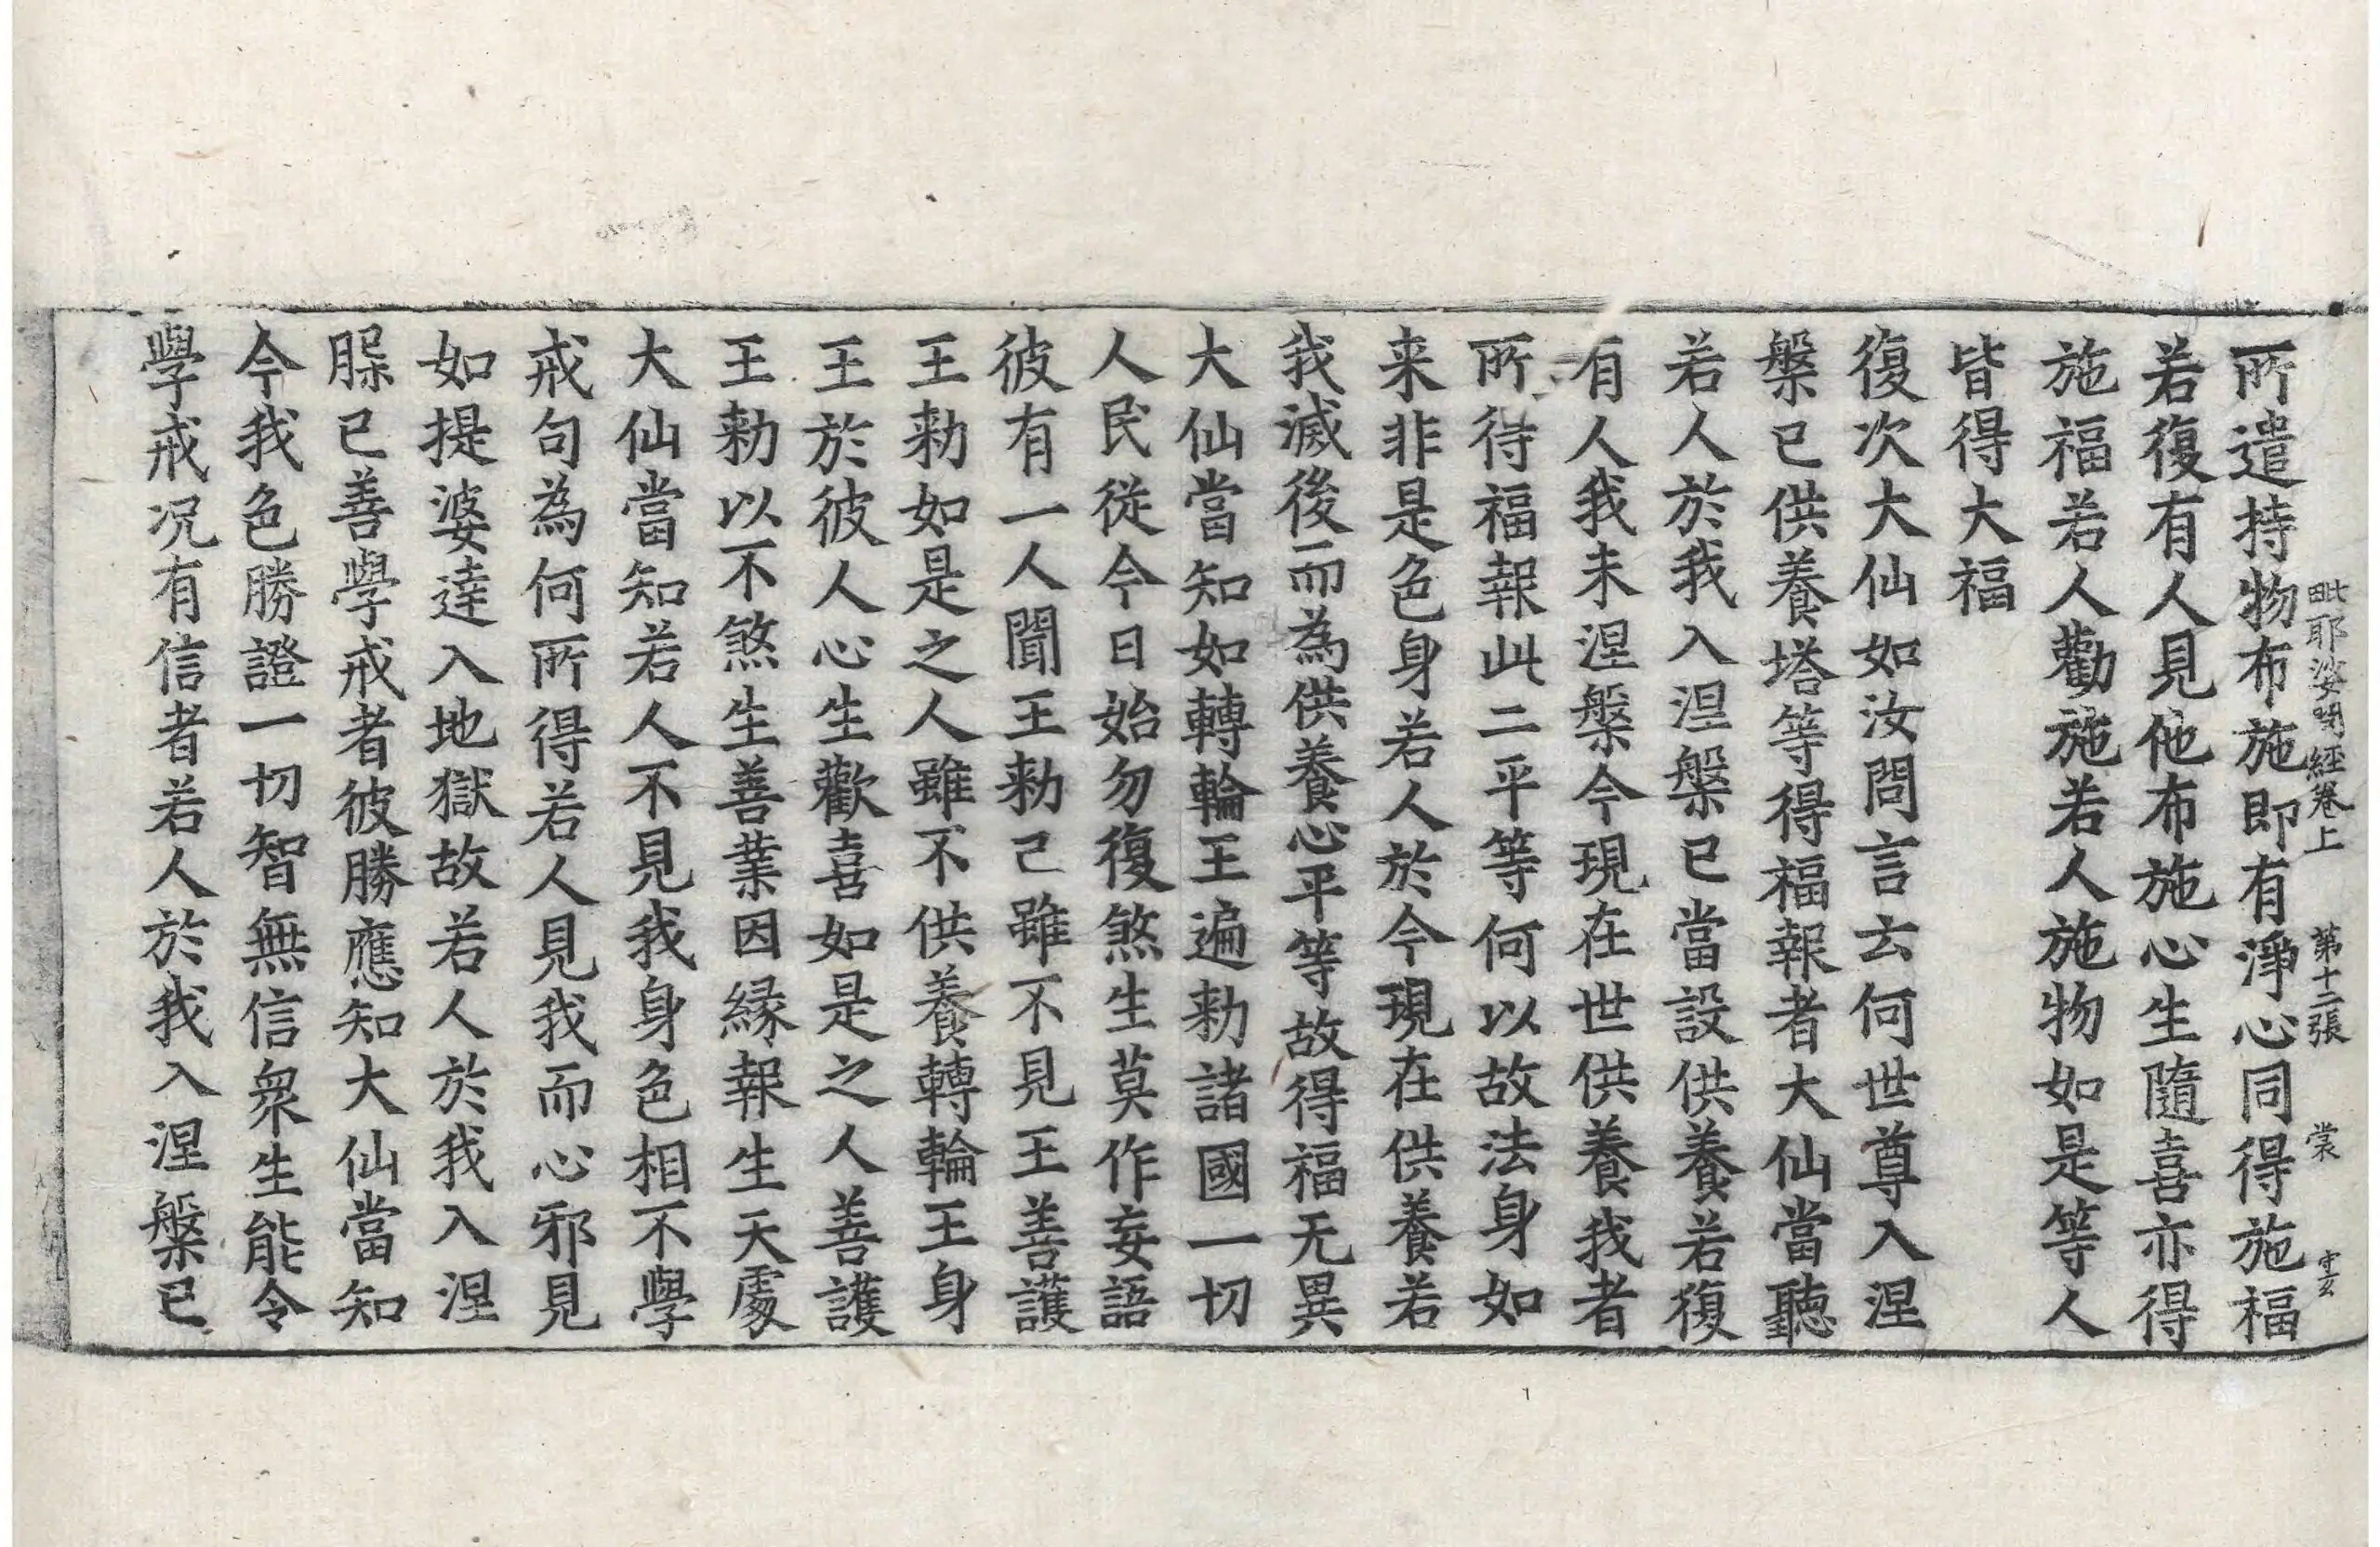 毗耶娑問經卷上 第十二張 裳 守玄
所遣持物布施即有淨心同得施福
若復有人見他布施心生隨喜亦得
施福若人勸施若人施物如是等人
皆得大福
復次大仙如汝問言云何世尊入涅
槃已供養塔等得福報者大仙當聽
若人於我入涅槃已當設供養若復
有人我未涅槃今現在世供養我者
所得福報此二平等何以故法身如
来非是色身若人於今現在供養若
我滅後而為供養心平等故得福无異
大仙當知如轉輪王遍勅諸國一切
人民從今日始勿復煞生莫作妄語
彼有一人聞王勅已雖不見王善護
王勅如是之人雖不供養轉輪王身
王於彼人心生歡喜如是之人善護
王勅以不煞生善業因縁報生天處
大仙當知若人不見我身色相不學
戒句為何所得若人見我而心邪見
如提婆達入地獄故若人於我入涅
槃已善學戒者彼勝應知大仙當知
今我色勝證一切智無信衆生能令
學戒况有信者若人於我入涅槃已